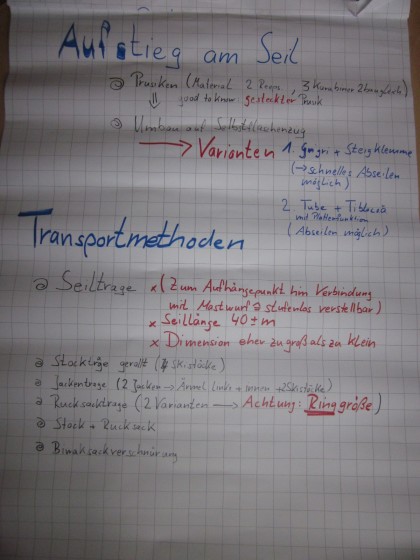 Aufstieg am Seil
Prusiken (Material 2 Reeps, 3 Karabiner 2 baugleiche)
⇓ good to know: gesteckter Prusik
Umbau auf Selbstflaschenzug
→ Varianten 1. Grigri + Steigklemme
(→ schnelles Abseilen
möglich)
2. Tube + Tibloc
mit Plattenfunktion
(Abseilen möglich)
Transportmethoden
Seiltrage x (Zum Aufhängepunkt hin Verbindung
mit Mastwurf stufenlos verstellbar)
x Seillänge 40 ± m
x Dimension eher zu groß als zu klein
Stocktrage gerollt (4 Skistöcke)
Jackentrage (2 Jacken → Ärmel links + innen + 2 Skistöcke)
Rucksacktrage (2 Varianten → Achtung: Ringgröße)
Stock + Rucksack
Biwaksackverschnürung